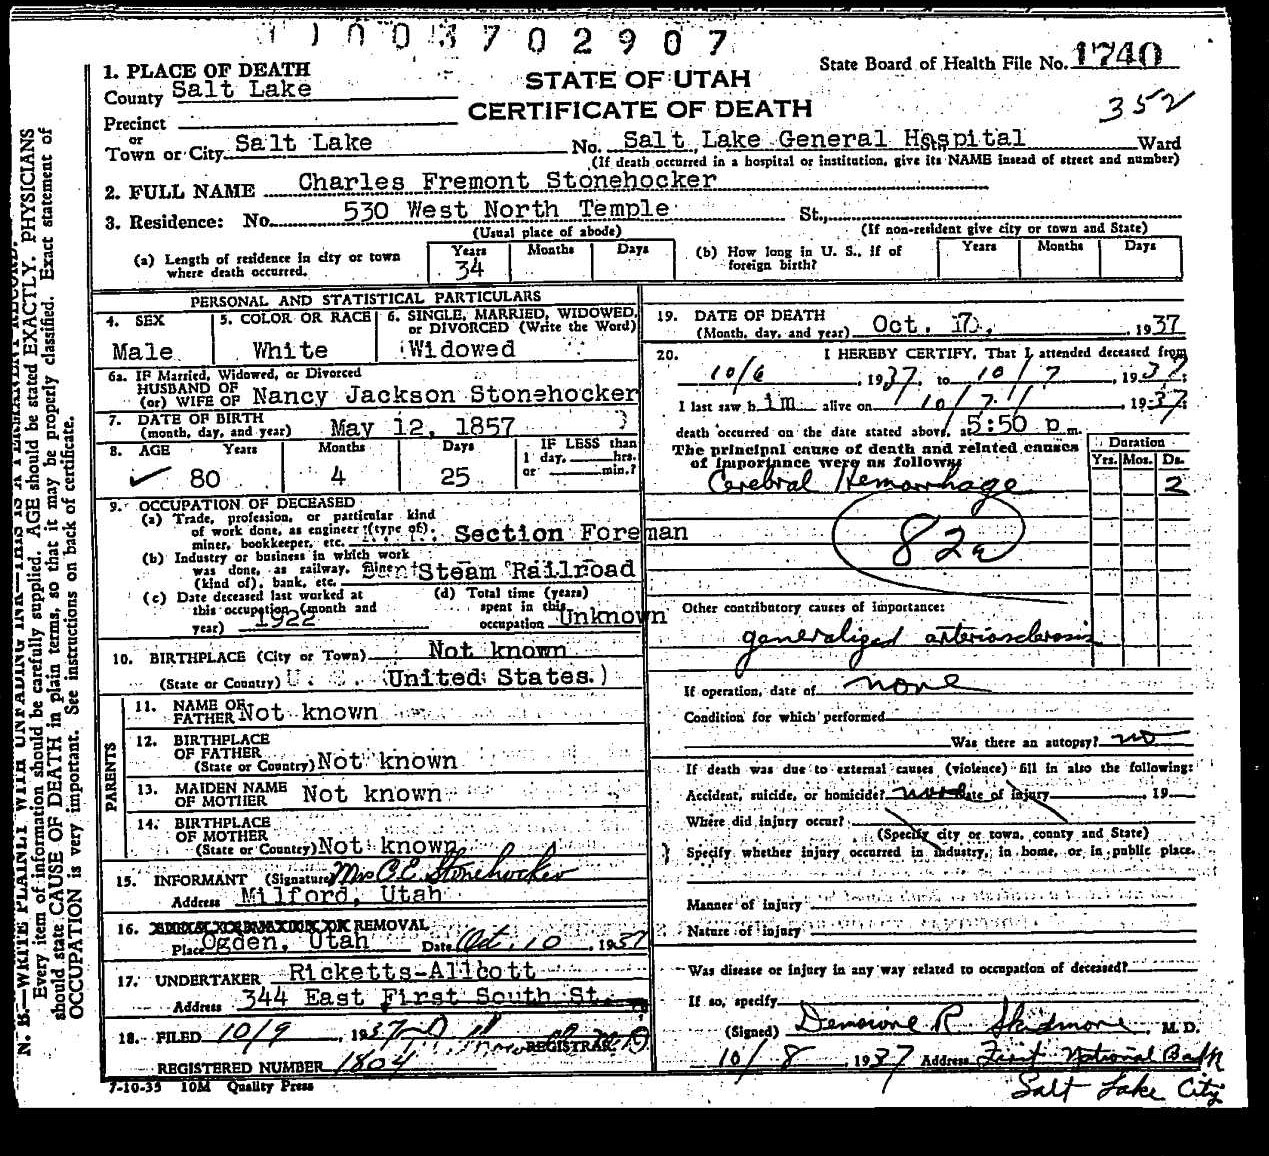 1003702907
State Board of Health File No. 1740
352
STATE OF UTAH
CERTIFICATE OF DEATH
1. PLACE OF DEATH
County Salt Lake
Precinct
or
Town or City Salt Lake No. Salt Lake General Hospital St., Ward
(If death occurred in a hospital or institution, give its NAME insead of street and number)
2. FULL NAME Charles Fremont Stonehocker
3. Residence: No. 530 West North Temple St.,
(Usual place of abode) (If non-resident give city or town and State)
(a) Length of residence in city or town where death occurred. Years 34 Months Days
(b) How long in U. S., if of foreign birth? Years Months Days
PERSONAL AND STATISTICAL PARTICULARS
4. SEX Male
5. COLOR OR RACE White
6. SINGLE, MARRIED, WIDOWED, or DIVORCED (Write the Word) Widowed
6a. IF Married, Widowed, or Divorced
HUSBAND OF
(or) WIFE OF Nancy Jackson Stonehocker
7. DATE OF BIRTH
(month, day, and year) May 12, 1857
8. AGE Years 80 Months 4 Days 25 IF LESS than 1 day, hrs. or min.?
9. OCCUPATION OF DECEASED
(a) Trade, profession, or particular kind
of work done, as engineer (type of),
miner, bookkeeper, etc. Section Foreman
(b) Industry or business in which work
was done, as railway, mine
(kind of), bank, etc. Steam Railroad
(c) Date deceased last worked at
this occupation (month and
year) 1922
(d) Total time (years)
spent in this
occupation Unknown
10. BIRTHPLACE (City or Town) Not known
(State or Country) U. S. (United States.)
PARENTS
11. NAME OF FATHER Not known
12. BIRTHPLACE OF FATHER
(State or Country) Not known
13. MAIDEN NAME OF MOTHER Not known
14. BIRTHPLACE OF MOTHER
(State or Country) Not known
15. INFORMANT (Signature) Mrs C.E. Stonehocker
Address Milford, Utah
16. REMOVAL
Place Ogden, Utah Date Oct. 10, 1937
17. UNDERTAKER Ricketts-Allcott
Address 344 East First South St.
18. FILED 10/9, 1937
REGISTRAR
REGISTERED NUMBER 1804
7-10-35 10M Quality Press
19. DATE OF DEATH
(Month, day, and year) Oct. 7, 1937
20. I HEREBY CERTIFY, That I attended deceased from
10/6, 1937, to 10/7, 1937;
I last saw him alive on 10/7, 1937;
death occurred on the date stated above, at 5:50 p.m.
The principal cause of death and related causes
of importance were as follows:
Duration
Yrs. Mos. Ds.
Cerebral Hemorrhage 2
82a
Other contributory causes of importance:
generalized arteriosclerosis
If operation, date of none
Condition for which performed
Was there an autopsy? no
If death was due to external causes (violence) fill in also the following:
Accident, suicide, or homicide? Date of injury, 19
Where did injury occur?
(Specify city or town, county and State)
Specify whether injury occurred in industry, in home, or in public place.
Manner of injury
Nature of injury
Was disease or injury in any way related to occupation of deceased?
If so, specify
(Signed) R Skidmore, M. D.
10/8, 1937 Address First National Bank
Salt Lake City
N. B.—WRITE PLAINLY WITH UNFADING INK—THIS IS A PERMANENT RECORD.
Every item of information should be carefully supplied. AGE should be stated EXACTLY. PHYSICIANS
should state CAUSE OF DEATH in plain terms, so that it may be properly classified. Exact statement of
OCCUPATION is very important. See instructions on back of certificate.